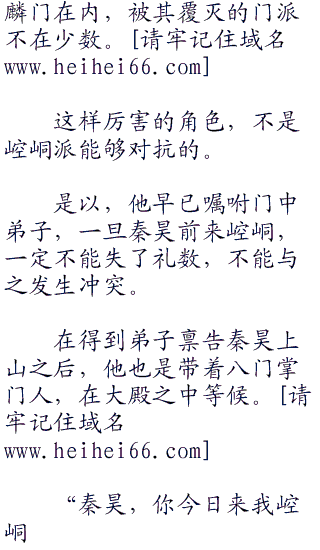 麟门在内，被其覆灭的门派
不在少数。[请牢记住域名
www.heihei66.com]
这样厉害的角色，不是
崆峒派能够对抗的。
是以，他早已嘱咐门中
弟子，一旦秦昊前来崆峒，
一定不能失了礼数，不能与
之发生冲突。
在得到弟子禀告秦昊上
山之后，他也是带着八门掌
门人，在大殿之中等候。[请
牢记住域名
www.heihei66.com]
“秦昊，你今日来我崆
峒